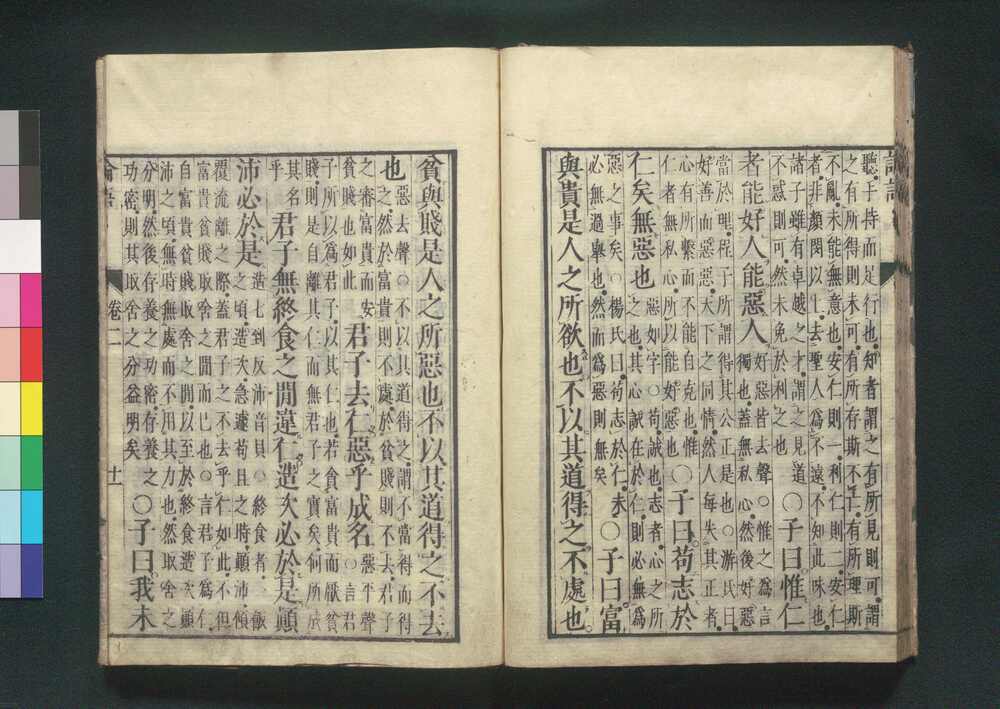 論語
聽手持而足行也知者謂之有所見則可謂
之有所得則未可有所存斯不亡有所理斯
不亂未能無意也安仁則一利仁則二安仁
者非顏閔以上去聖人爲不遠不知此味也
諸子雖有卓越之才謂之見道
不惑則可然未免於利之也
○子曰惟仁
者能好人能惡人
好惡皆去聲○惟之爲言
獨也蓋無私心然後好惡
當於理程子所謂得其公正是也○游氏曰
好善而惡惡天下之同情然人每失其正者
心有所繫而不能自克也惟
仁者無私心所以能好惡也
○子曰苟志於
仁矣無惡也
惡如字○苟誠也志者心之所
之也其心誠在於仁則必無爲
惡之事矣○楊氏曰苟志於仁未
必無過舉也然而爲惡則無矣
○子曰富
與貴是人之所欲也不以其道得之不處也
貧與賤是人之所惡也不以其道得之不去
也
惡去聲○不以其道得之謂不當得而得
之然於富貴則不處於貧賤則不去君子
之審富貴而安
貧賤也如此
君子去仁惡乎成名
惡平聲
○言君
子所以爲君子以其仁也若貪富貴而厭貧
賤則是自離其仁而無君子之實矣何所成
其名
乎
君子無終食之閒違仁造次必於是顚
沛必於是
造七到反沛音貝○終食者一飯
之頃造次急遽苟且之時顚沛傾
覆流離之際蓋君子之不去乎仁如此不但
富貴貧賤取舍之閒而已也○言君子爲仁
自富貴貧賤取舍之閒以至於終食造次顚
沛之頃無時無處而不用其力也然取舍之
分明然後存養之功密存養之
功密則其取舍之分益明矣
○子曰我未
論語
卷二
十一